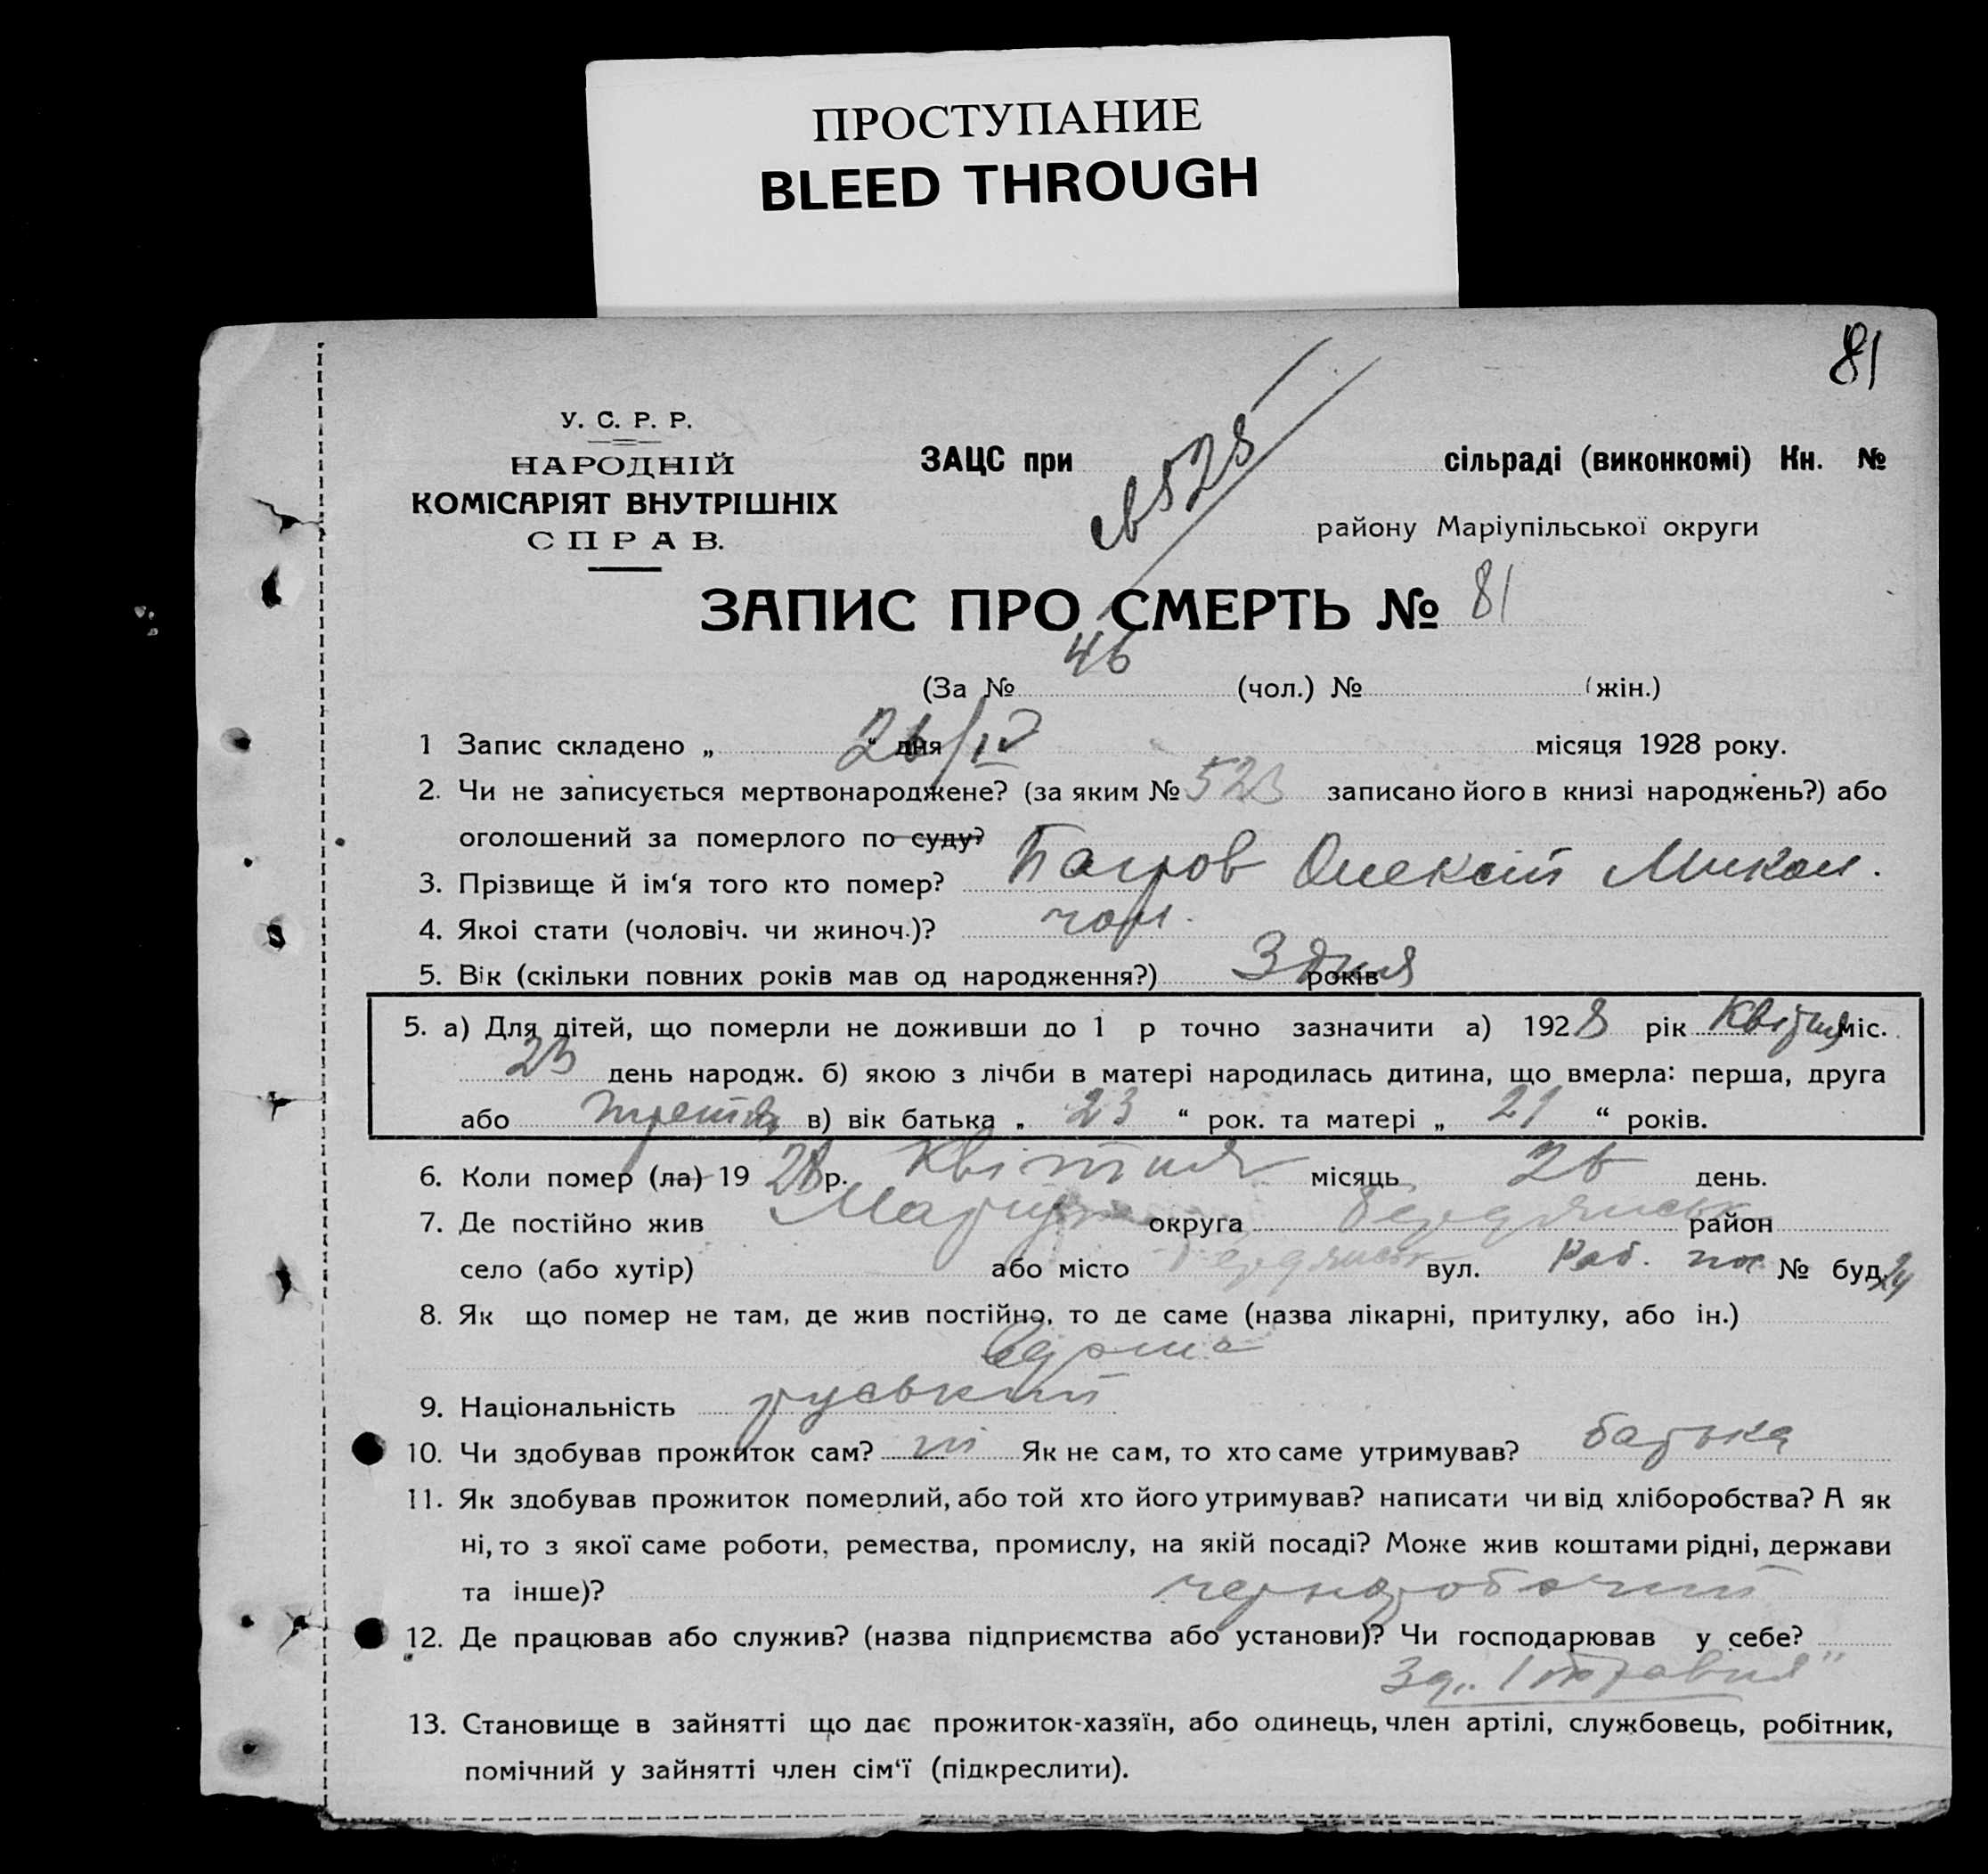 ПРОСТУПАНИЕ
BLEED THROUGH
81
У. С. Р. Р.
НАРОДНІЙ
КОМІСАРІЯТ ВНУТРІШНІХ
СПРАВ.
ЗАЦС при сільраді (виконкомі) Кн. №
528
району Маріупільської округи
ЗАПИС ПРО СМЕРТЬ № 81
46
(За № (чол.) № (жін.)
1 Запис складено „ 26/IV “ дня місяця 1928 року.
2. Чи не записується мертвонароджене? (за яким № 523 записано його в книзі народжень?) або
оголошений за померлого по суду?
3. Прізвище й ім‘я того кто помер? Багров Олексій Микол.
4. Якоі стати (чоловіч. чи жиноч.)? чол.
5. Вік (скільки повних років мав од народження?) 3 дня років
5. а) Для дітей, що померли не доживши до 1 р точно зазначити а) 1928 рік Квітня міс.
23 день народж. б) якою з лічби в матері народилась дитина, що вмерла: перша, друга
або третя в) вік батька „ 23 “ рок. та матері „ 21 “ років.
6. Коли помер (ла) 1928 р. Квітня місяць 26 день.
7. Де постійно жив Маріуп округа Бердянськ район
село (або хутір) або місто Бердянськ вул. Раб. пос № буд. 24
8. Як що помер не там, де жив постійно, то де саме (назва лікарні, притулку, або ін.)
вдома
9. Національність руський
10. Чи здобував прожиток сам? ні Як не сам, то хто саме утримував? батька
11. Як здобував прожиток померлий, або той хто його утримував? написати чи від хліборобства? А як
ні, то з якої саме роботи, ремества, промислу, на якій посаді? Може жив коштами рідні, держави
та інше)? чернороботчий
12. Де працював або служив? (назва підприємства або установи)? Чи господарював у себе?
Зд „1 травня"
13. Становище в зайнятті що дає прожиток-хазяїн, або одинець, член артілі, службовець, робітник,
помічний у зайнятті член сім‘ї (підкреслити).